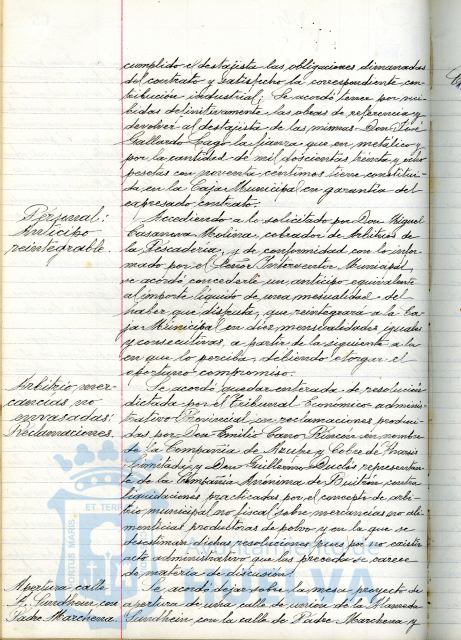 cumplido el destajista las obligaciones dimanadas
del contrato y satisfecho la correspondiente con-
tribución industrial; Se acordó tener por reci-
bidas definitivamente las obras de referencia y
devolver al destajista de las mismas Don José
Gallardo Lago la fianza que en metálico y
por la cantidad de mil doscientas treinta y ocho
pesetas con noventa céntimos tiene constitui-
da en la Caja Municipal en garantía del
expresado contrato.
Personal:
Anticipo
reintegrable.
Accediendo a lo solicitado por Don Miguel
Casanova Molina, cobrador de Arbitrios de
la Pescadería, y de conformidad con lo infor-
mado por el Señor Interventor Municipal,
se acordó concederle un anticipo equivalente
al importe líquido de una mesualidad del
haber que disfruta, que reintegrará a la Ca-
ja Municipal en diez mensualidades iguales
y consecutivas, a partir de la siguiente a la
en que lo perciba, debiendo otorgar el
oportuno compromiso.
Arbitrio mer-
cancías no
envasadas:
Reclamaciones.
Se acordó quedar enterada de resolución
dictada por el Tribunal Económico-adminis-
trativo Provincial en reclamaciones produci-
das por Don Emilio Cano Rincón en nombre
de la Compañía de Azufre y Cobre de Tharsis
Limitada y Don Guillermo Duclós represen-
te de la Compañía Anónima de Buitrón, contra
liquidaciones practicadas por el concepto de arbi-
trio municipal no fiscal sobre mercancías no ali-
menticias productoras de polvo y en la que se
desestiman dichas resoluciones pues por no existir
acto administrativo que las preceda se carece
de materia de discusión.
Apertura calle
Sundheim con
Padre Marchena
Se acordó dejar sobre la mesa proyecto de
apertura de una calle de unión de la Alameda
Sundheim con la calle de Padre Marchena y
ET TERR
PORTUS MARIS
Ayuntamiento de